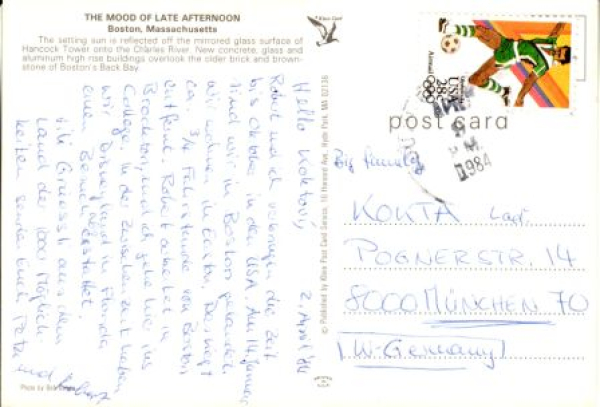 THE MOOD OF LATE AFTERNOON
Boston, Massachusetts
The setting sun is reflected off the mirrored glass surface of
Hancock Tower onto the Charles River. New concrete, glass and
aluminum high rise buildings overlook the older brick and brown-
stone of Boston's Back Bay.
Hello
2. April '84
Robert und ich verbringen die Zeit
bis Oktober in den USA. Am 14. Januar
sind wir in Boston gelandet.
wir wohnen in Easton, Das liegt
ca. 3/4 Fahrstunde von Boston
entfernt. Robert arbeitet in
und ich gehe hier ins
College. In der Zwischenzeit haben
wir Disneyland in Florida
einen Besuch abgestattet.
Viele Grüsse aus dem
Land der 1000 Möglich-
keiten senden euch
und Robert
Photo by
© Published by Klew Post Card Service, 10 Howard Ave., Hyde Park, MA 02136
Klew Card
post card
USA
28c
Airmail
PM
1984
Big family
KOKTA
POGNERSTR. 14
8000 MÜNCHEN 70
W-Germany